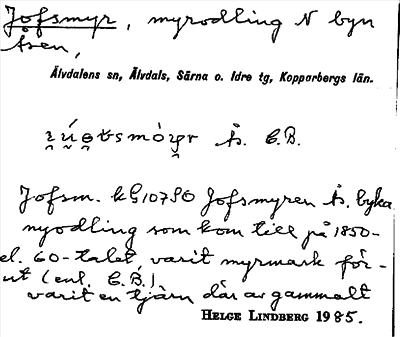 Jofsmyr, myrodling N byn
Åsen,
Älvdalens sn, Älvdals, Särna o. Idre tg, Kopparbergs län.
Å. C.B.
Jofsm. kG10790 Jofsmyren Å. byka
myodling som kom till på 1850-
el. 60-talet varit myrmark för-
ut (enl. C.B.)
varit en tjärn där av gammalt
HELGE LINDBERG 1985.